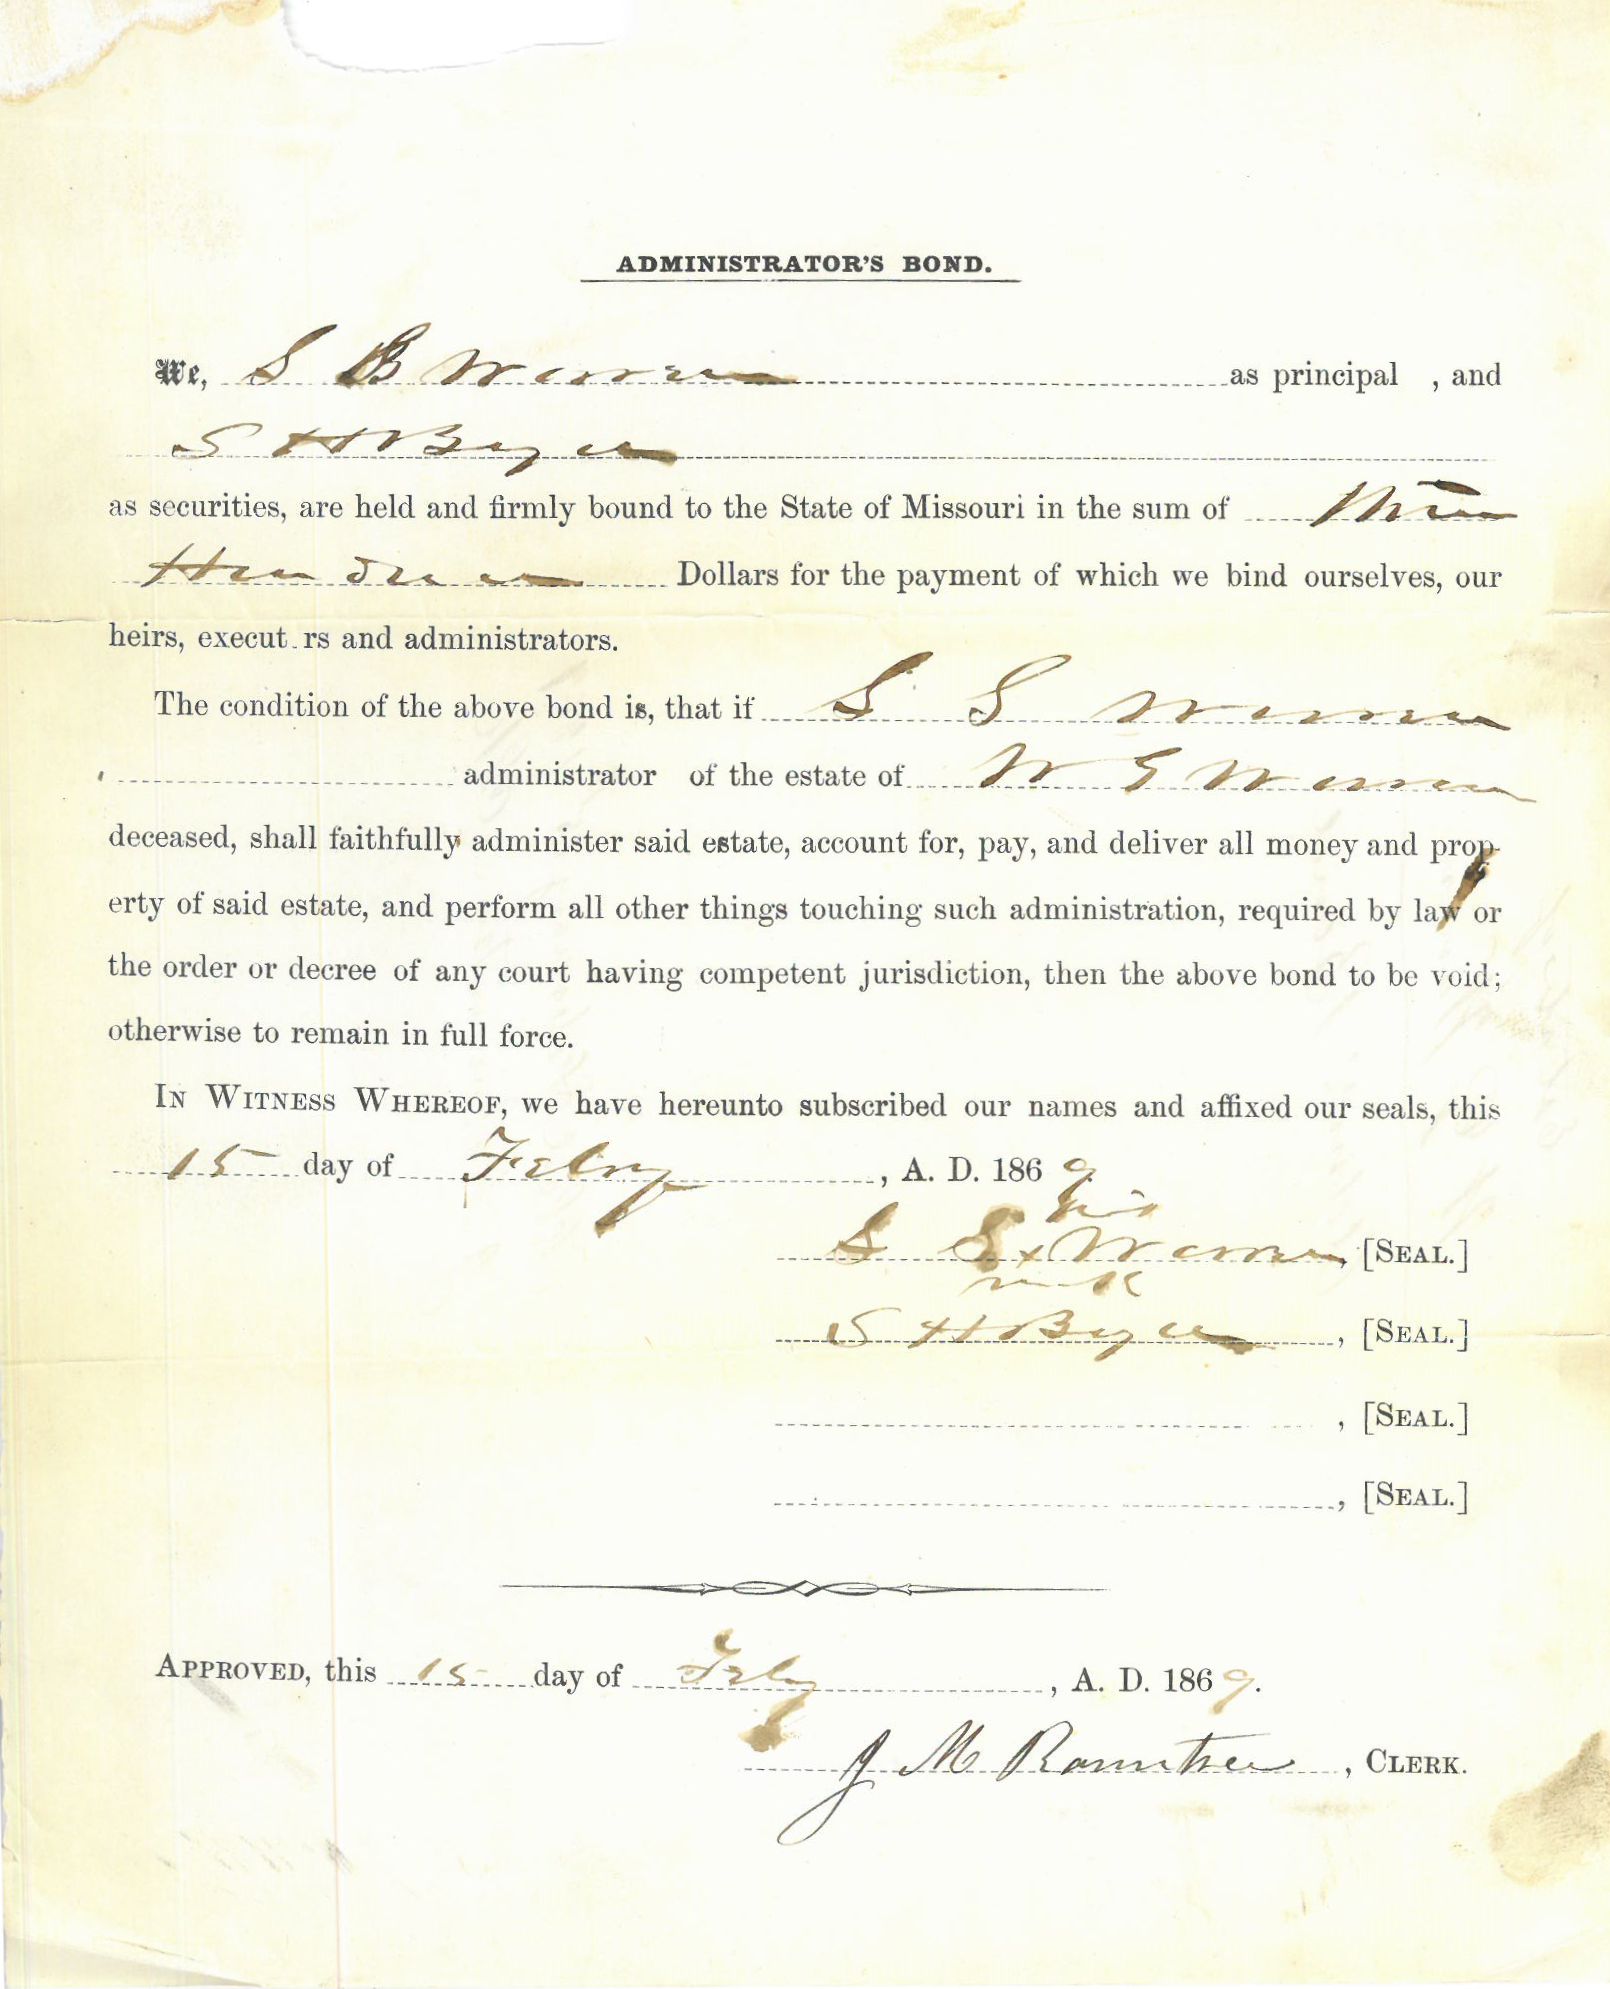 ADMINISTRATOR'S BOND.
We, S B Warren as principal , and
S H Boyd
as securities, are held and firmly bound to the State of Missouri in the sum of
Hundred Dollars for the payment of which we bind ourselves, our
heirs, execut rs and administrators.
The condition of the above bond is, that if S S Warren
administrator of the estate of W G Warren
deceased, shall faithfully administer said estate, account for, pay, and deliver all money and prop-
erty of said estate, and perform all other things touching such administration, required by law or
the order or decree of any court having competent jurisdiction, then the above bond to be void;
otherwise to remain in full force.
IN WITNESS WHEREOF, we have hereunto subscribed our names and affixed our seals, this
15 day of Febry , A. D. 1869
his
S S x Warren , [SEAL.]
mark
S H Boyd , [SEAL.]
, [SEAL.]
, [SEAL.]
APPROVED, this 15 day of Feby , A. D. 1869.
J M Rountree , CLERK.